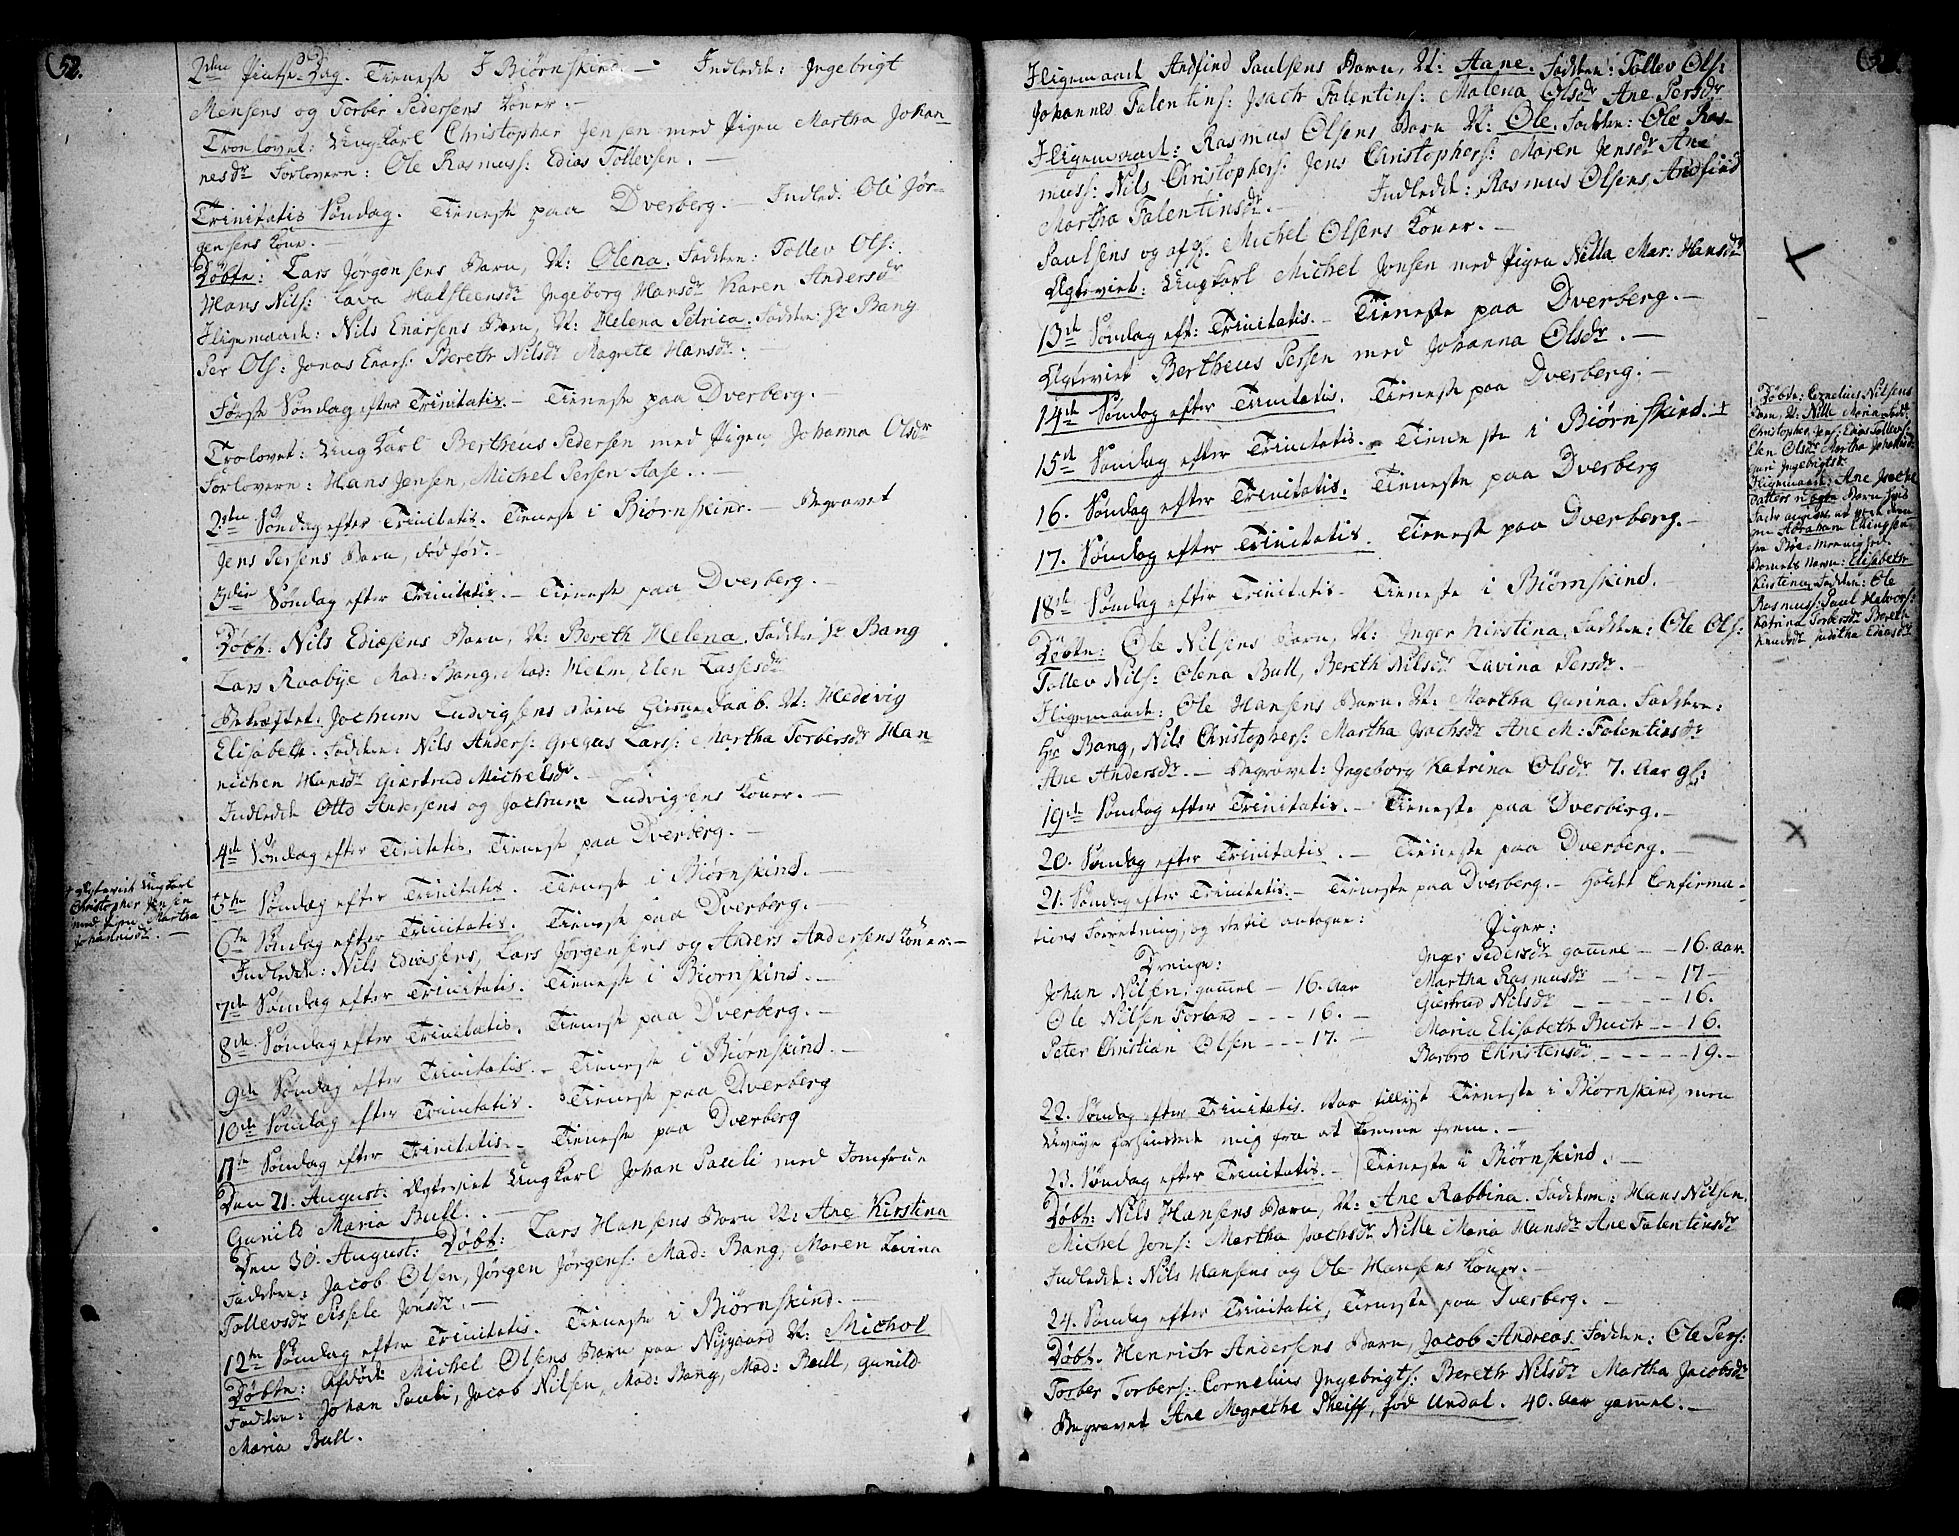 52.
2den Pintse-Dag. Tieneste I Biørnskind. — Indledde: Ingebrigt
Mensens og Torber Pedersens Koner. —
Troelovet: Ungkarl Christopher Jensen med Pigen Martha Johan-
nesdr Forlovern: Ole Rasmuss: Edias Tollevsen. —
Trinitatis Søndag. Tieneste paa Dverberg. — Indled: Ole Jør-
gensens Kone. —
Døbte: Lars Jørgensens Barn, N: Olena. Faddere: Tollev Ols:
Hans Nils: Lava Halsteensdr Ingeborg Hansdr Karen Andersdr
Iligemaade: Nils Enarsens Barn, N: Helena Petrica. Faddere: Hr Bang
Per Ols: Jonas Enars: Bereth Nilsdr Magrete Hansdr. —
Første Søndag efter Trinitatis. — Tieneste paa Dverberg. —
Trolovet: Ungkarl Bertheus Pedersen med Pigen Johanna Olsdr
Forlovern: Hans Jensen, Michel Persen Aase. . —
2den Søndag efter Trinitatis. Tieneste i Biørnskind. — Begravet
Jens Persens Barn, dødfød. —
3die Søndag efter Trinitatis. — Tieneste paa Dverberg. —
Døbt: Nils Ediasens Barn, N: Bereth Helena. Faddere: Hr Bang
Lars Raabye Mad: Bang, Mad: Melm, Elen Lassesdr
Bekræftet: Jochum Ludvigsens Barns Hiemme Daab. N: Hedevig
Elisabeth. Faddere: Nils Anders: Gregus Larss: Martha Torbersdr Han-
nichen Hansdr Giertrud Michelsdr. —
Indledde Otto Andersens og Jochum Ludvigsens Koner. —
4de Søndag efter Trinitatis. Tieneste paa Dverberg. —
5te Søndag efter Trinitatis. Tieneste i Biørnskind. —
+ Egteviet Ungkarl
Christopher Jensen
med Pigen Martha
Johannisdr. —
6te Søndag efter Trinitatis. Tieneste paa Dverberg. —
Indledde: Nils Ediasens, Lars Jørgensens og Anders Andersens Koner. —
7de Søndag efter Trinitatis. Tieneste i Biørnskind. —
8de Søndag efter Trinitatis. Tieneste paa Dverberg. —
9de Søndag efter Trinitatis. — Tieneste i Biørnskind. —
10de Søndag efter Trinitatis. Tieneste paa Dverberg
11te Søndag efter Trinitatis. — Tieneste paa Dverberg
Den 21. August: Egteviet Ungkarl Johan Pauli med Jomfrue
Gunild Maria Bull. . —
Den 30. August: Døbt: Lars Hansens Barn N: Ane Kirstina
Faddere: Jacob Olsen, Jørgen Jørgens: Mad: Bang, Maren Lavina
Tollevsdr Sissele Jonsdr. —
12te Søndag efter Trinitatis. Tieneste i Biørnskind. —
Døbte: Afdøde Michel Olsens Barn paa Nygaard N: Michol
Faddere: Johan Pauli, Jacob Nilsen, Mad: Bang, Mad: Bull, Gunild
Maria Bull.
Iligemaade Andfind Paulsens Barn, N: Aane. Faddere: Tollev Ols:
Johannes Falentins: Isach Falentins: Malena Olsdr Ane Persdr
Iligemaade: Rasmus Olsens Barn N: Ole. Faddere: Ole Ras-
muss: Nils Christophers: Jens Christophers: Maren Jensdr Ane
Martha Falentinsdr. — Indledde: Rasmus Olsens, Andfind
Paulsens og afg. Michel Olsens Koner. —
Egteviet: Ungkarl Michel Jonsen med Pigen Nilla Mar: Hansdr
13de Søndag eft: Trinitatis. — Tieneste paa Dverberg. —
Egteviet Bertheus Persen med Johanna Olsdr. —
14de Søndag efter Trinitatis. Tieneste paa Dverberg. —
15de Søndag efter Trinitatis. — Tieneste i Biørnskind. +
16. Søndag efter Trinitatis. Tieneste paa Dverberg
17. Søndag efter Trinitatis. Tieneste paa Dverberg. —
18de Søndag efter Trinitatis Tieneste i Biørnskind.
Døbte: Ole Nilsens Barn, N: Inger Kirstina. Faddere: Ole Ols:
Tollev Nils: Olena Bull, Bereth Nilsdr Lavina Persdr. —
Iligemaade: Ole Hansens Barn. N: Martha Gurina. Faddere:
Hr Bang, Nils Christophers: Martha Isachsdr Ane M: Falentinsdr
Ane Andersdr. — Begravet: Ingeborg Katrina Olsdr 7. Aar gl:
19de Søndag efter Trinitatis. — Tieneste paa Dverberg. —
20. Søndag efter Trinitatis. — Tieneste paa Dverberg. —
21. Søndag efter Trinitatis. — Tieneste paa Dverberg. — Holdt Confirma-
tions Forretning, og dertil antagne:
Drenge:
Johan Nilsen, gammel — 16. Aar
Ole Nilsen Forland - - - 16. —
Peter Christian Olsen - - - 17. —
Piger:
Inger Pedersdr gammel — 16. aar.
Martha Rasmusdr — — 17 —
Giertrud Nilsdr - - - - - 16.
Maria Elisabeth Buch - - 16.
Barbro Christensdr - - - - - 19. —
22. Søndag efter Trinitatis. Var tillyst Tieneste i Biørnskind, men
Uveyr forhindrede mig fra at komme frem. —
23. Søndag efter Trinitatis. — Tieneste i Biørnskind. —
Døbt: Nils Hansens Barn, N: Ane Rabbina. Faddere: Hans Nilsen
Michel Jons: Martha Isachsdr Nille Maria Hansdr Ane Falentinsdr
Indledde: Nils Hansens og Ole Hansens Koner. —
24. Søndag efter Trinitatis, Tieneste paa Dverberg. —
Døbt. Henrich Andersens Barn, Jacob Andreas. Faddere: Ole Pers:
Torber Torbers: Cornelius Ingebrigts: Bereth Nilsdr Martha Jacobsdr
Begravet Ane Magrethe Pheiff, fød Undal. 40. Aar gammel. —
+ Døbte: Cornelius Nilsens
Barn, N: Nille Maria Fadd:
Christopher Jens: Edias Tollevs:
Elen Olsdr Martha Johannisdr
Guri Ingebrigtsdr
Iligemaade: Ane Jacobs
Datters uægte Barn hvis
Fader angives at være
Abraham Ellingsen
fra Bøe-Menighed.
Barnets Navn: Elisabeth
Kirstina. Faddere: Ole
Rasmuss: Paul Halvors:
Katrina Torbersdr Bereth
Knudsdr Juditha Ediasdr